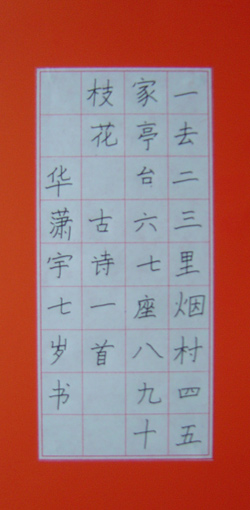 一去二三里烟村四五
家亭台六七座八九十
枝花 古诗一首
华萧宇七岁书